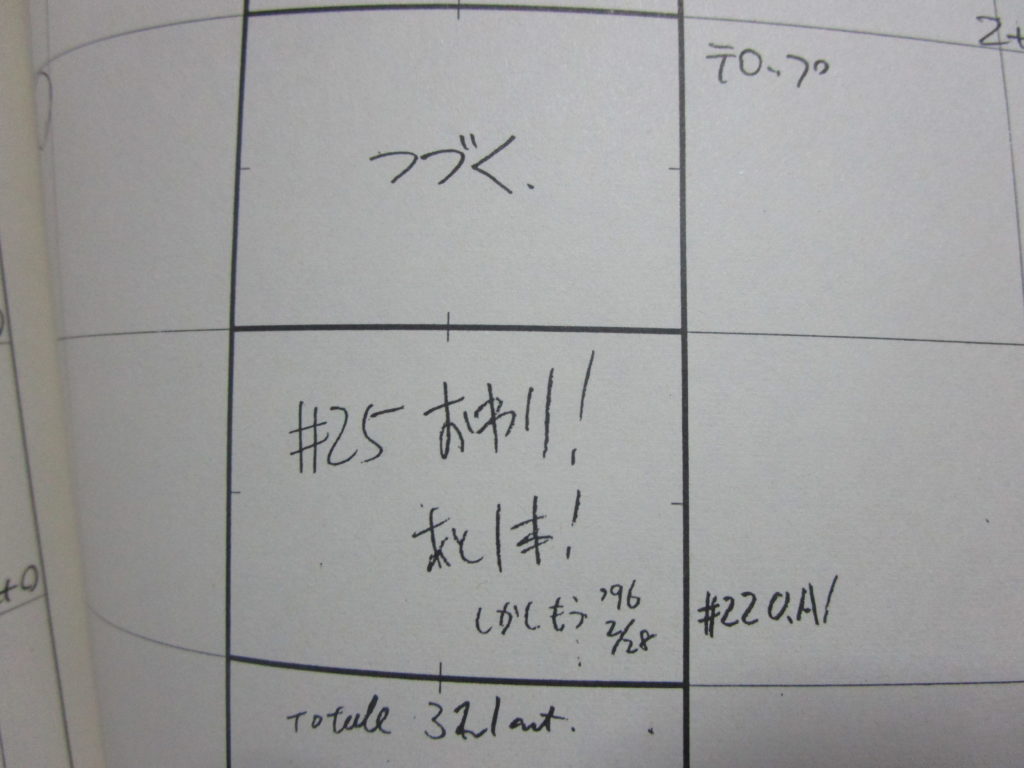 テロップ
つづく.
#25 おわり!
あと1本!
しかしもう '96 2/28
#22 O.A!
Totale